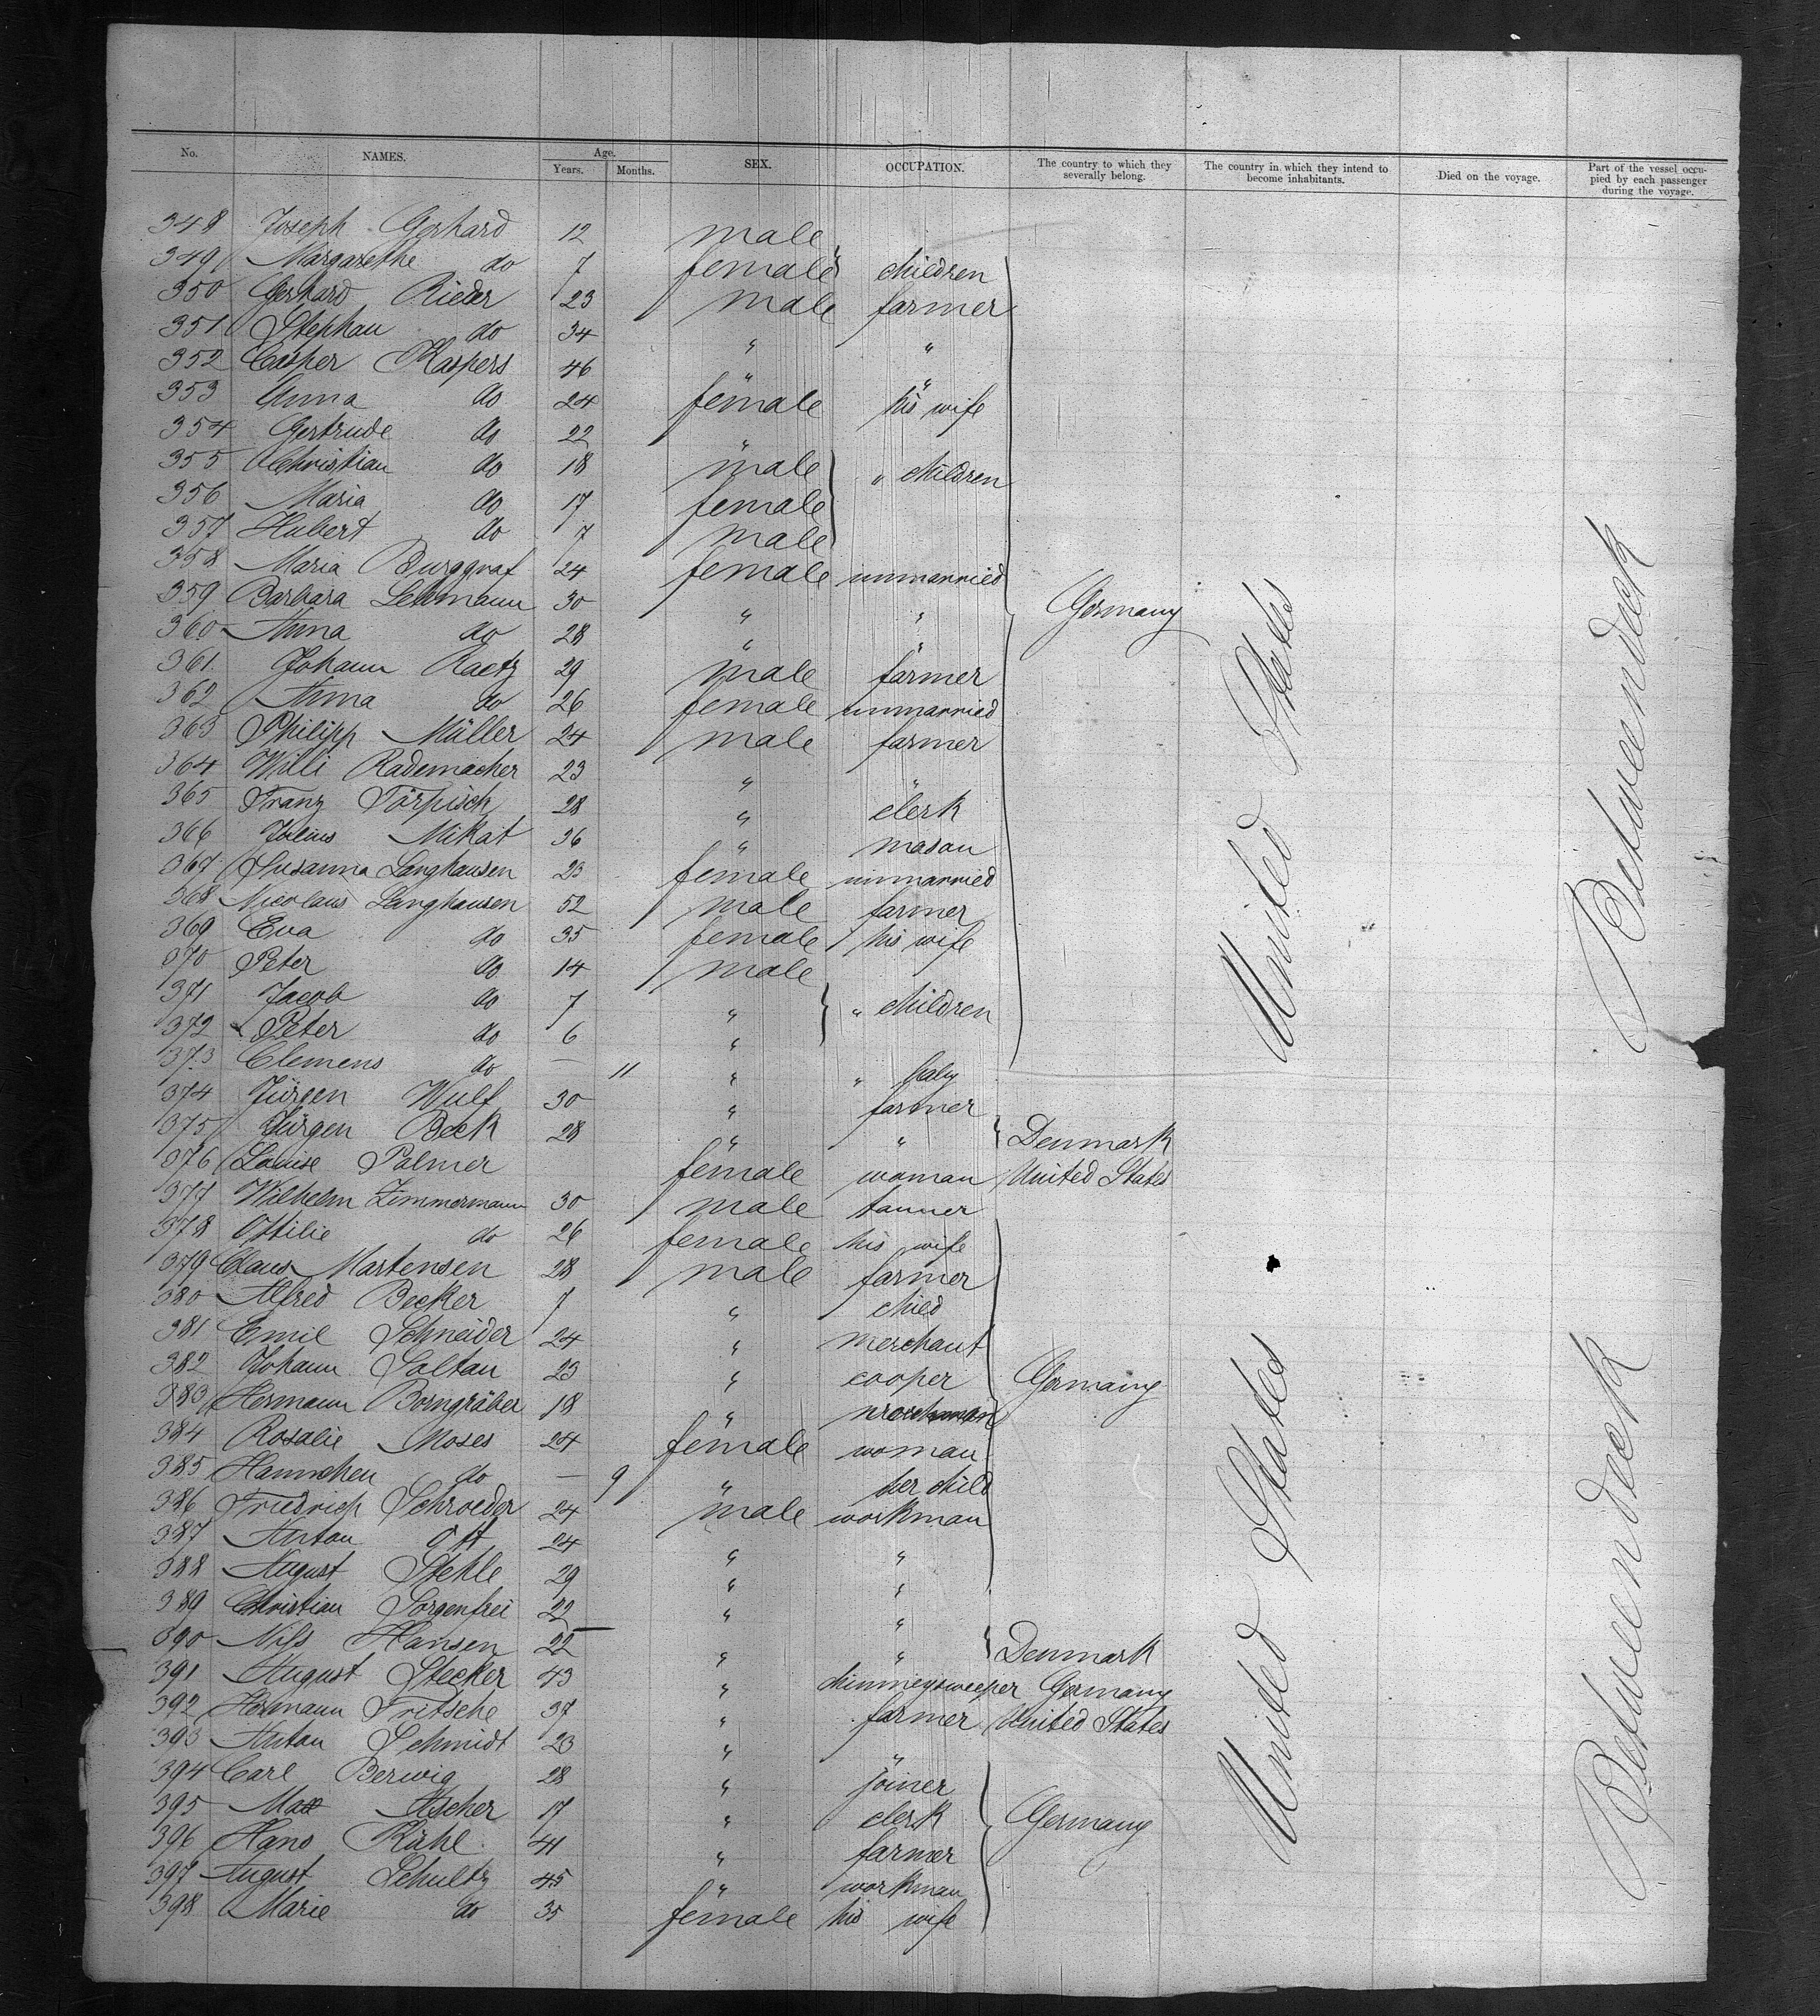 No. NAMES. Age. Years. Months. SEX. OCCUPATION. The country to which they severally belong. The country in which they intend to become inhabitants. Died on the voyage. Part of the vessel occupied by each passenger during the voyage.
348 Joseph Gerhard 12 male
349 Margarethe do 7 female children
350 Gerhard Rieder 23 male farmer
351 Stephan do 34 " "
352 Casper Kaspers 46 " "
353 Anna do 24 female his wife
354 Gertrude do 22 "
355 Christian do 18 male " children
356 Maria do 17 female
357 Hubert do 7 male
358 Maria Burggraf 24 female unmarried
359 Barbara Lehmann 30 " " Germany
360 Anna do 28 " "
361 Johann Raetz 29 male farmer
362 Anna do 26 female unmarried
363 Philipp Müller 24 male farmer
364 Willi Rademacher 23 " "
365 Franz Törpisch 28 " clerk
366 Julius Mikat 36 " mason
367 Susanna Langhausen 23 female unmarried
368 Nicolaus Langhausen 52 male farmer
369 Eva do 35 female his wife
370 Peter do 14 male
371 Jacob do 7 " " children
372 Peter do 6 "
373 Clemens do — 11 " " baby
374 Jürgen Wulf 30 " farmer
375 Jürgen Beck 28 " " Denmark
376 Louise Palmer female woman United States
377 Wilhelm Zimmermann 30 male tanner
378 Ottilie do 26 female his wife
379 Claus Martensen 28 male farmer
380 Alfred Becker 7 " child
381 Emil Schneider 24 " merchant
382 Johann Saltau 23 " cooper Germany
383 Hermann Borngräber 18 " workman
384 Rosalie Moses 24 female woman
385 Hannchen do — 9 " her child
386 Friedrich Schroeder 24 male workman
387 Anton Ott 24 " "
388 August Stehle 29 " "
389 Christian Sorgenfrei 22 " "
390 Nils Hansen 22 " " Denmark
391 August Stecker 43 " chimneysweeper Germany
392 Hermann Fritsche 37 " farmer United States
393 Anton Schmidt 23 " "
394 Carl Berwig 28 " joiner
395 Max Ascher 17 " clerk Germany
396 Hans Kühl 41 " farmer
397 August Schultz 45 " workman
398 Marie do 35 female his wife
United States
United States
Betweendeck
Betweendeck